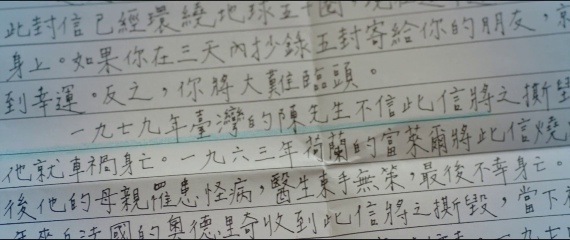 此封信已經環繞地球五十圈，現在
身上。如果你在三天內抄錄五封寄給你的朋友，
到幸運。反之，你將大難臨頭。
一九七九年臺灣的陳先生不信此信將之撕毀
他就車禍身亡。一九六三年荷蘭的富萊爾將此信燒
後他的母親罹患怪病，醫生束手無策，最後不幸身亡。
法國的奧德里奇收到此信將之撕毀，當下
一九七